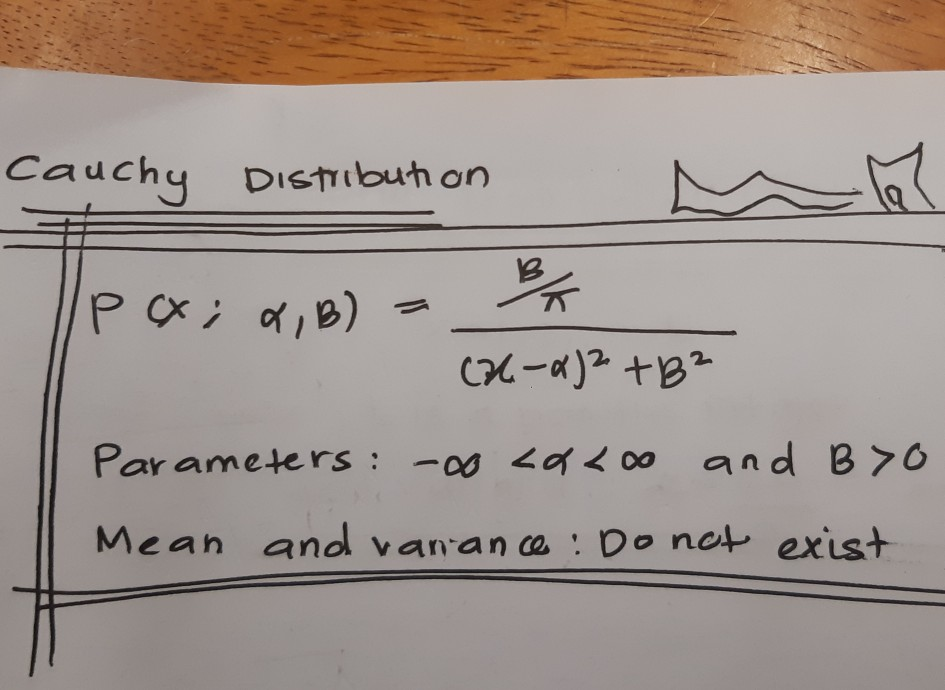 Cauchy Distribution
P(x; α, B) = B/π / (x-α)² + B²
Parameters: -∞ < α < ∞ and B > 0
Mean and variance: Do not exist